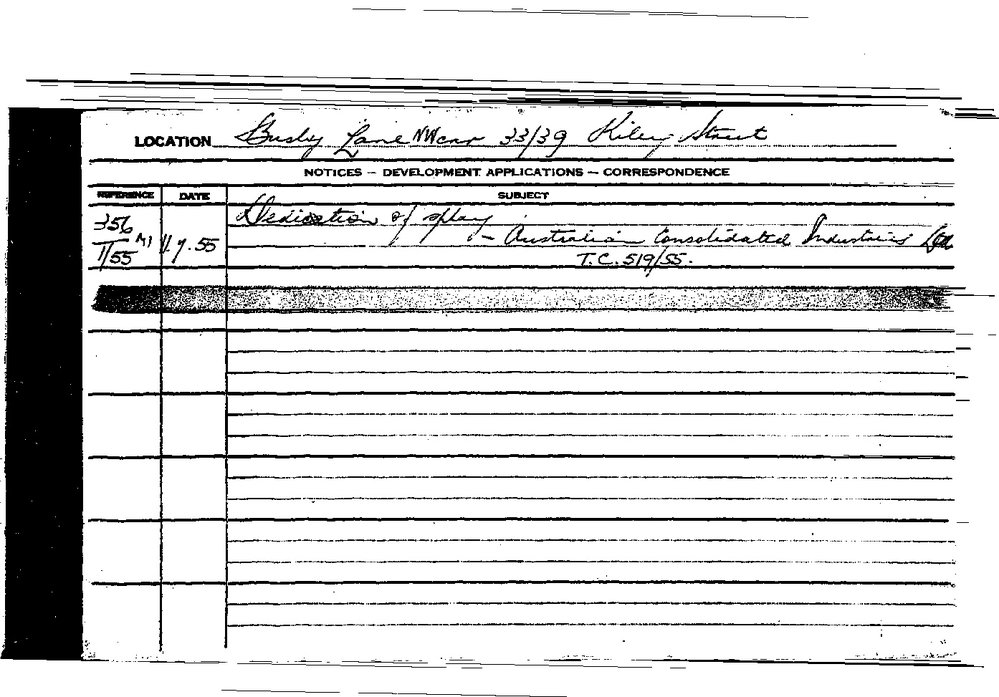 LOCATION Busby Lane NW cnr 33/39 Riley Street
NOTICES — DEVELOPMENT APPLICATIONS — CORRESPONDENCE
REFERENCE DATE SUBJECT
356 Dedication of splay
1/55 M1 11.7.55 — Australian Consolidated Industries Ltd
T.C. 519/55.